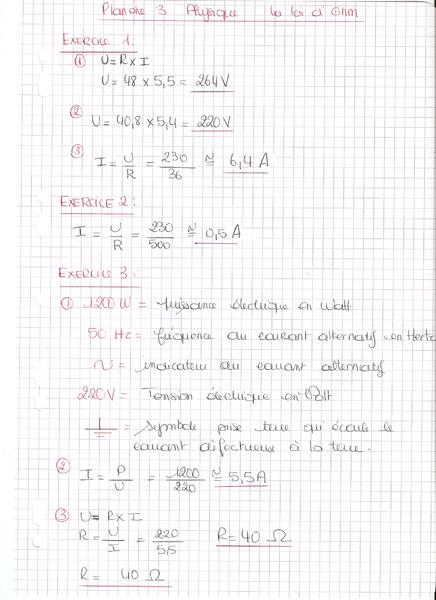 Planche 3 Physique la loi d'Ohm
EXERCICE 1:
① U = R x I
U = 48 x 5,5 = 264 V
② U = 40,8 x 5,4 = 220 V
③ I = U/R = 230/36 ≅ 6,4 A
EXERCICE 2:
I = U/R = 230/500 ≅ 0,5 A
EXERCICE 3:
① 1200 W = puissance électrique en Watt
50 Hz = fréquence du courant alternatif en Hertz
~ = indicateur du courant alternatif
220V = Tension électrique en Volt
⏚ = symbole prise terre qui écoule le
courant défectueux à la terre.
② I = P/U = 1200/220 ≅ 5,5 A
③ U = R x I
R = U/I = 220/5,5 R = 40 Ω
R = 40 Ω